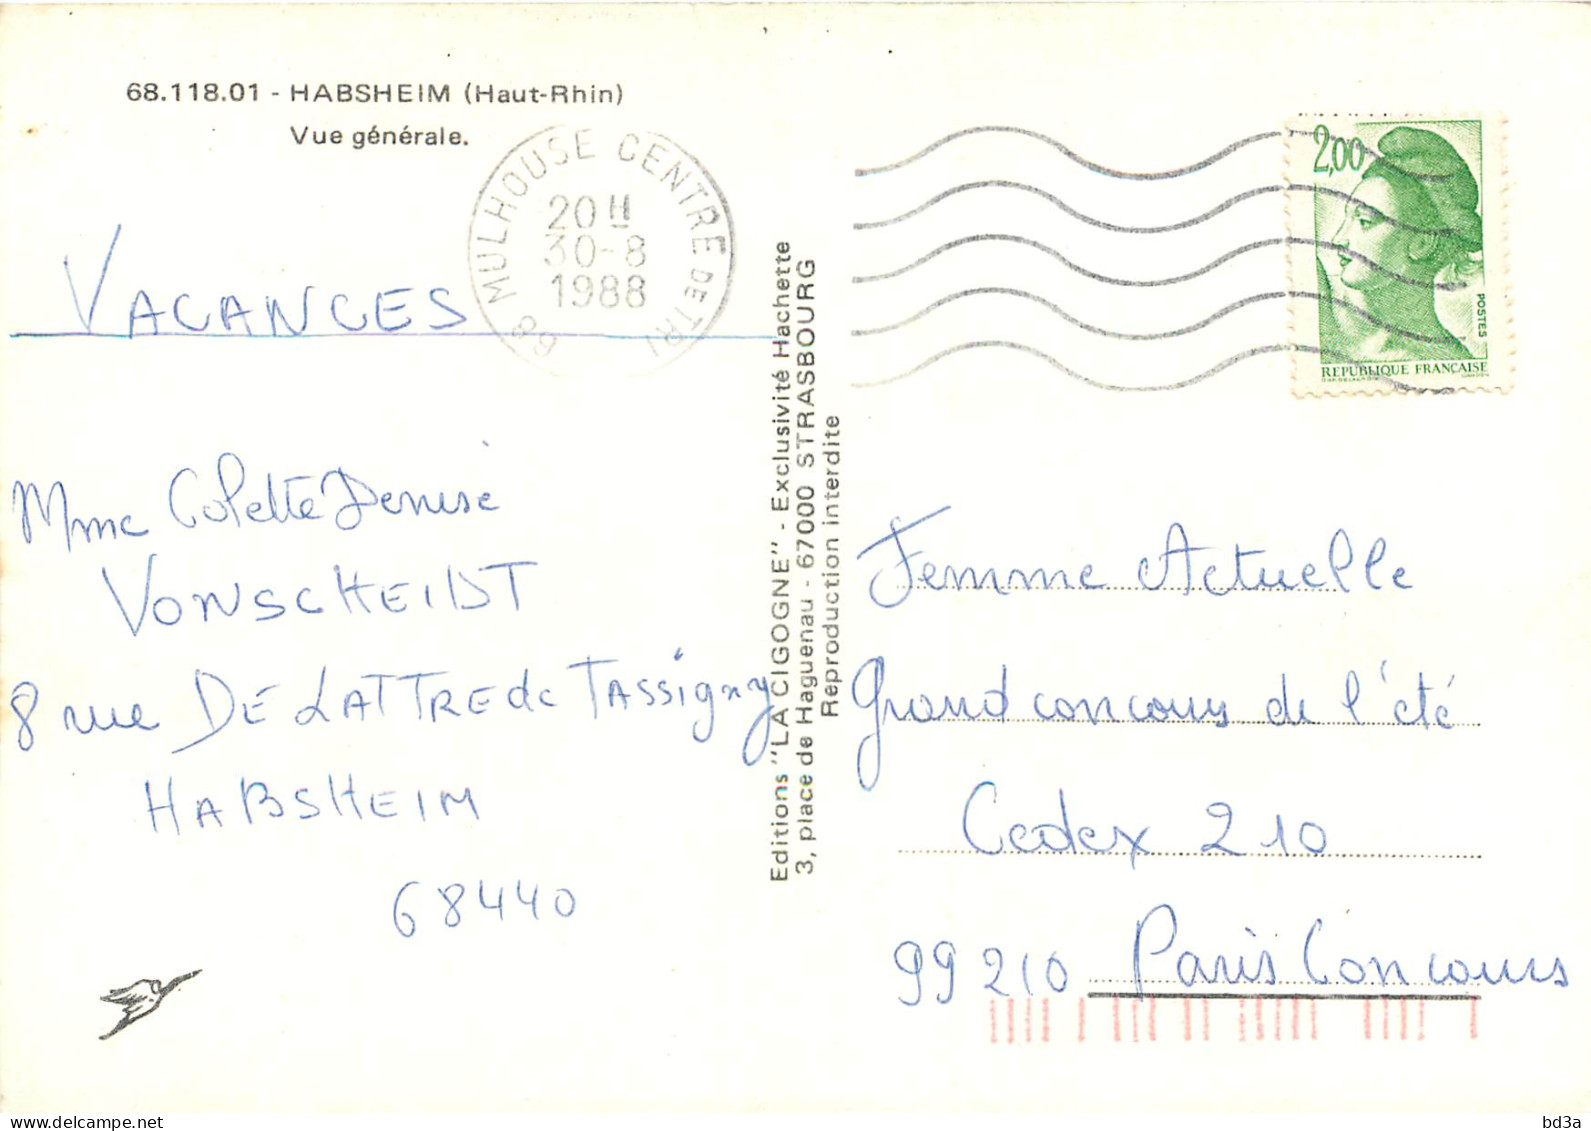 68.118.01 - HABSHEIM (Haut-Rhin)
Vue générale.
MULHOUSE CENTRE DE TRI
68
20 H
30-8
1988
2,00
POSTES
REPUBLIQUE FRANÇAISE
VACANCES
Mme Colette Denise
VONSCHEIDT
8 rue DE LATTRE de TASSigny
HABSHEIM
68440
Editions "LA CIGOGNE" - Exclusivité Hachette
3, place de Haguenau - 67000 STRASBOURG
Reproduction interdite
Femme Actuelle
Grand concours de l'été
Cedex 210
99210 Paris Concours
delcampe.net
bd3a